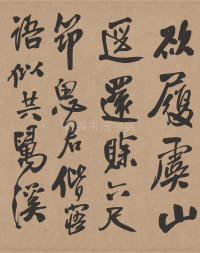 欲履虞山
逕還賒六尺
筇思君偕
語似共溪